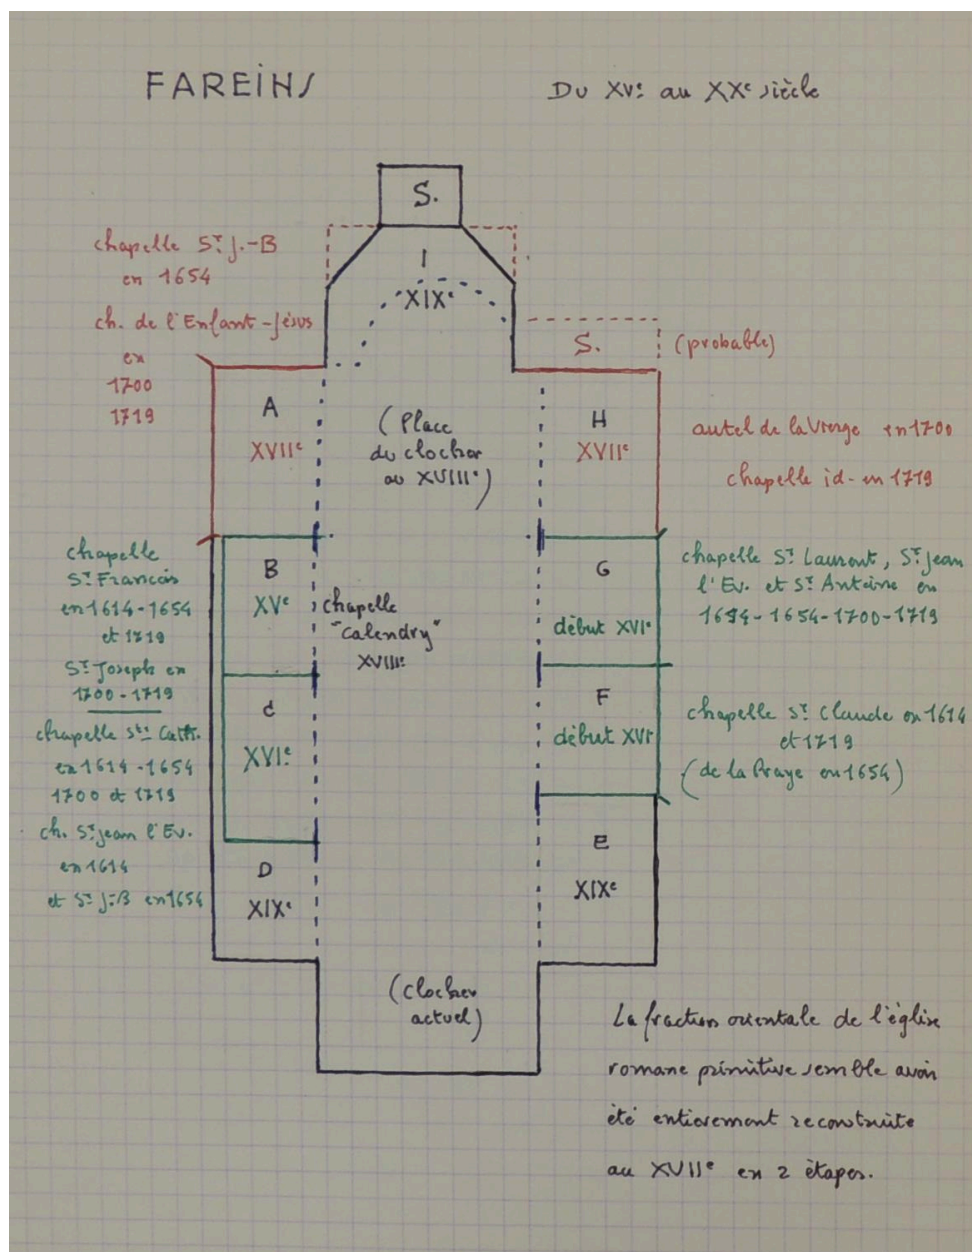 FAREINS
Du XVe au XXe siècle
S.
chapelle St J.-B
en 1654
ch. de l'Enfant-Jésus
en
1700
1719
I
XIXe
S.
(probable)
A
XVIIe
(Place
du clocher
au XVIIIe)
H
XVIIe
autel de la Vierge en 1700
chapelle id. en 1719
chapelle
St Francois
en 1614-1654
et 1719
St Joseph en
1700-1719
B
XVe
chapelle
"Calendry"
XVIIIe
G
début XVIe
chapelle St Laurent, St jean
l'Ev. et St Antoine en
1654-1700-1719
chapelle Ste Cath.
en 1614-1654
1700 et 1719
ch. St jean l'Ev.
en 1614
et St J.-B en 1654
C
XVIe
F
début XVIe
chapelle St Claude en 1614
et 1719
(de la Praye en 1654)
D
XIXe
E
XIXe
(clocher
actuel)
La fraction orientale de l'église
romane primitive semble avoir
été entièrement reconstruite
au XVIIe en 2 étapes.